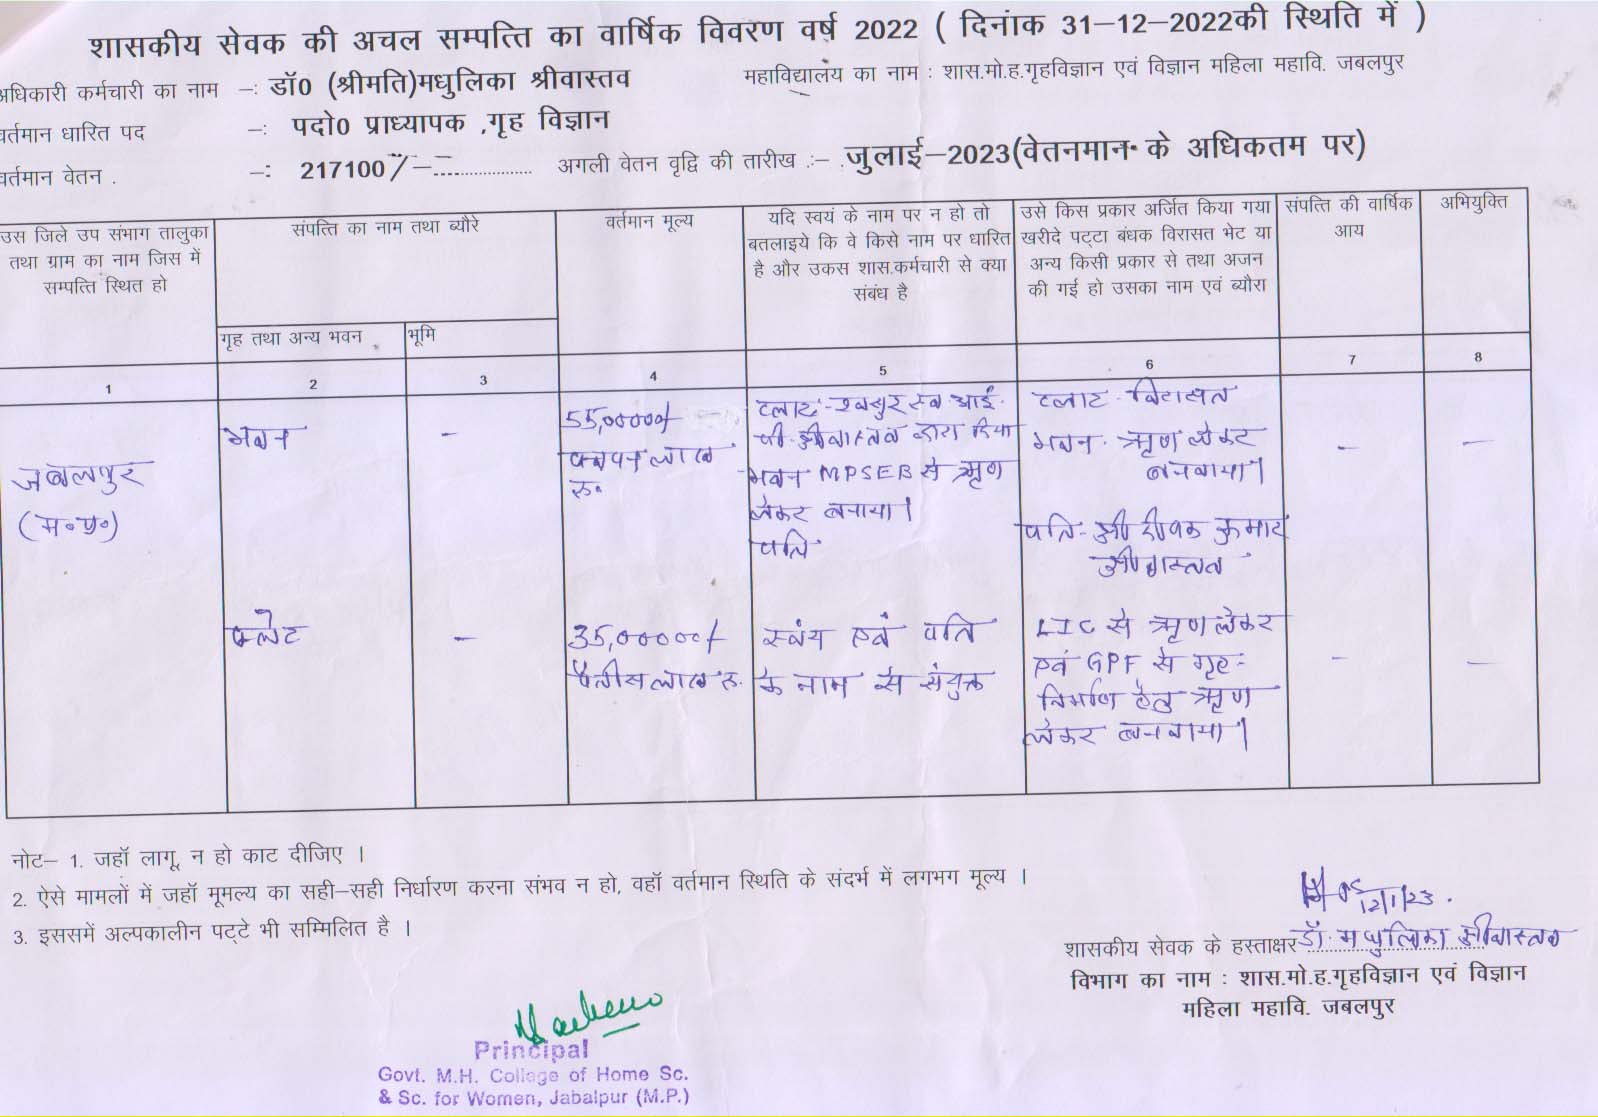 शासकीय सेवक की अचल सम्पत्ति का वार्षिक विवरण वर्ष 2022 ( दिनांक 31–12–2022की स्थिति में )
अधिकारी कर्मचारी का नाम –: डॉ0 (श्रीमति)मधुलिका श्रीवास्तव महाविद्यालय का नाम : शास.मो.ह.गृहविज्ञान एवं विज्ञान महिला महावि. जबलपुर
वर्तमान धारित पद –: पदो0 प्राध्यापक ,गृह विज्ञान
वर्तमान वेतन . –: 217100/– अगली वेतन वृद्वि की तारीख .:– . जुलाई–2023(वेतनमान के अधिकतम पर)
उस जिले उप संभाग तालुका
तथा ग्राम का नाम जिस में
सम्पत्ति स्थित हो
संपत्ति का नाम तथा ब्यौरे
गृह तथा अन्य भवन
भूमि
वर्तमान मूल्य
यदि स्वयं के नाम पर न हो तो
बतलाइये कि वे किसे नाम पर धारित
है और उकस शास.कर्मचारी से क्या
संबंध है
उसे किस प्रकार अर्जित किया गया
खरीदे पट्टा बंधक विरासत भेट या
अन्य किसी प्रकार से तथा अजन
की गई हो उसका नाम एवं ब्यौरा
संपत्ति की वार्षिक
आय
अभियुक्ति
1 2 3 4 5 6 7 8
जबलपुर
(म०प्र०)
भवन
–
55,00000/-
पचपन लाख
रु.
प्लाट-श्वसुर स्व आई.
पी. श्रीवास्तव द्वारा दिया
भवन MPSEB से ऋण
लेकर बनाया।
पति
प्लाट - विरासत
भवन - ऋण लेकर
बनवाया।
पति- श्री दीपक कुमार
श्रीवास्तव
–
–
फ्लेट
–
35,00000/-
पैंतीस लाख रु.
स्वंय एवं पति
के नाम से संयुक्त
LIC से ऋण लेकर
एवं GPF से गृह-
निर्माण हेतु ऋण
लेकर बनवाया।
–
–
नोट– 1. जहॉ लागू, न हो काट दीजिए ।
2. ऐसे मामलों में जहॉ मूमल्य का सही–सही निर्धारण करना संभव न हो, वहॉ वर्तमान स्थिति के संदर्भ में लगभग मूल्य ।
3. इससमें अल्पकालीन पट्टे भी सम्मिलित है ।
12/1/23.
शासकीय सेवक के हस्ताक्षर डॉ. मधुलिका श्रीवास्तव
विभाग का नाम : शास.मो.ह.गृहविज्ञान एवं विज्ञान
महिला महावि. जबलपुर
Principal
Govt. M.H. College of Home Sc.
& Sc. for Women, Jabalpur (M.P.)